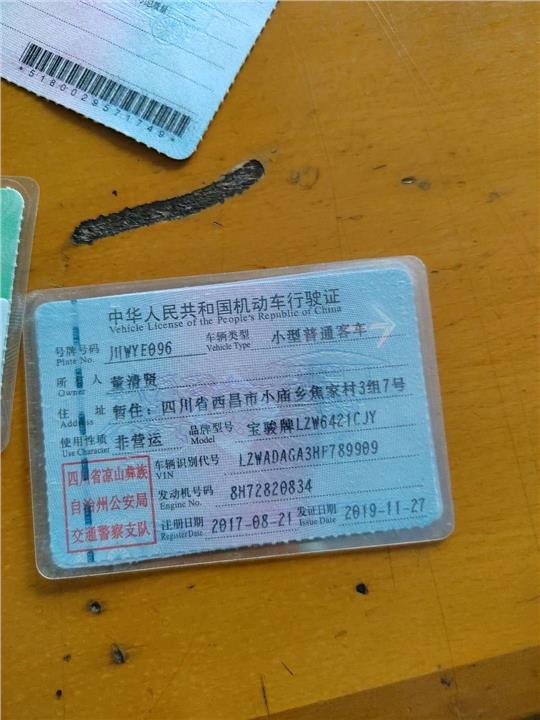 *5180029571749*
中华人民共和国机动车行驶证
Vehicle License of the People's Republic of China
号牌号码 川WYE096 车辆类型 小型普通客车
Plate No. Vehicle Type
所有人 董清贤
Owner
住址 暂住：四川省西昌市小庙乡焦家村3组7号
Address
使用性质 非营运 品牌型号 宝骏牌LZW6421CJY
Use Character Model
四川省凉山彝族
自治州公安局
交通警察支队
车辆识别代号 LZWADAGA3HF789909
VIN
发动机号码 8H72820834
Engine No.
注册日期 2017-08-21 发证日期 2019-11-27
Register Date Issue Date